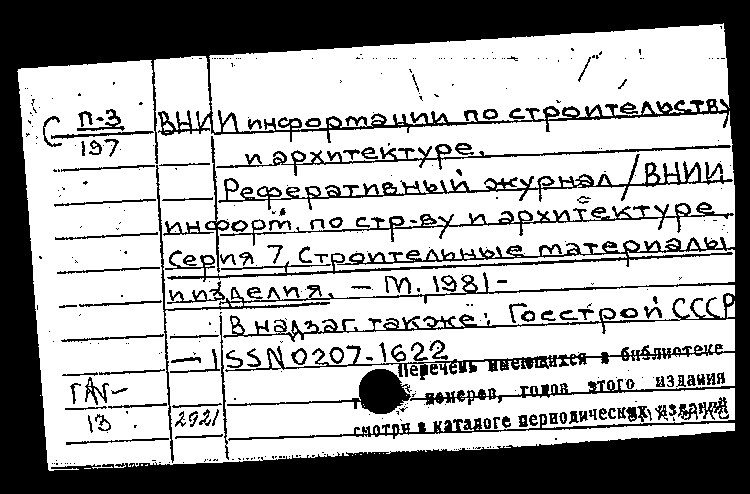 С П-3 ВНИИ информации по строительству
197 и архитектуре.
Реферативный журнал / ВНИИ
информ. по стр-ву и архитектуре.
Серия 7, Строительные материалы
и изделия. – М., 1981 –
В надзаг. также: Госстрой СССР
– ISSN 0207-1622
Перечень имеющихся в библиотеке
номеров, годов этого издания
13 2921
смотри в каталоге периодических изданий